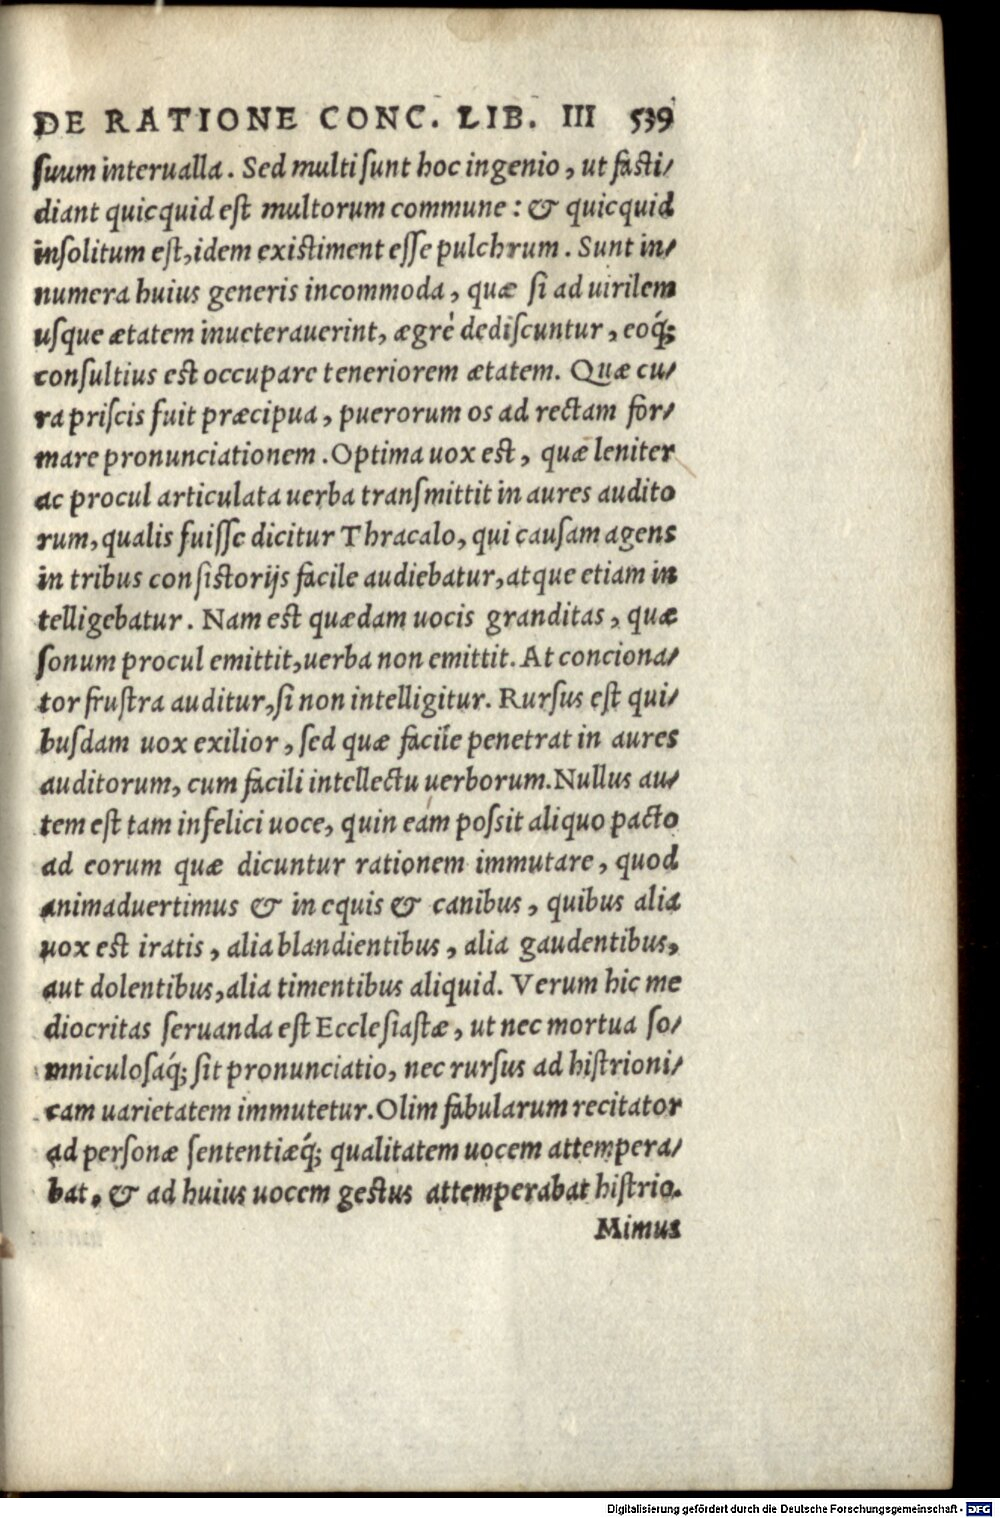 DE RATIONE CONC. LIB. III 539
ſuum interualla. Sed multi ſunt hoc ingenio, ut faſti/
diant quicquid eſt multorum commune: & quicquid
inſolitum eſt, idem exiſtiment eſſe pulchrum. Sunt in/
numera huius generis incommoda, quæ ſi ad uirilem
uſque ætatem inueterauerint, ægrè dediſcuntur, eoq́;
conſultius eſt occupare teneriorem ætatem. Quæ cu/
ra priſcis fuit præcipua, puerorum os ad rectam for/
mare pronunciationem. Optima uox eſt, quæ leniter
ac procul articulata uerba tranſmittit in aures audito
rum, qualis fuiſſe dicitur Thracalo, qui cauſam agens
in tribus conſiſtorijs facile audiebatur, atque etiam in
telligebatur. Nam eſt quædam uocis granditas, quæ
ſonum procul emittit, uerba non emittit. At conciona/
tor fruſtra auditur, ſi non intelligitur. Rurſus eſt qui/
buſdam uox exilior, ſed quæ facile penetrat in aures
auditorum, cum facili intellectu uerborum. Nullus au/
tem eſt tam infelici uoce, quin eam poſsit aliquo pacto
ad eorum quæ dicuntur rationem immutare, quod
animaduertimus & in equis & canibus, quibus alia
uox eſt iratis, alia blandientibus, alia gaudentibus,
aut dolentibus, alia timentibus aliquid. Verum hic me
diocritas ſeruanda eſt Eccleſiaſtæ, ut nec mortua ſo/
mniculoſaq́; ſit pronunciatio, nec rurſus ad hiſtrioni/
cam uarietatem immutetur. Olim fabularum recitator
ad perſonæ ſententiæq́; qualitatem uocem attempera/
bat, & ad huius uocem geſtus attemperabat hiſtrio.
Mimus
Digitalisierung gefördert durch die Deutsche Forschungsgemeinschaft - DFG